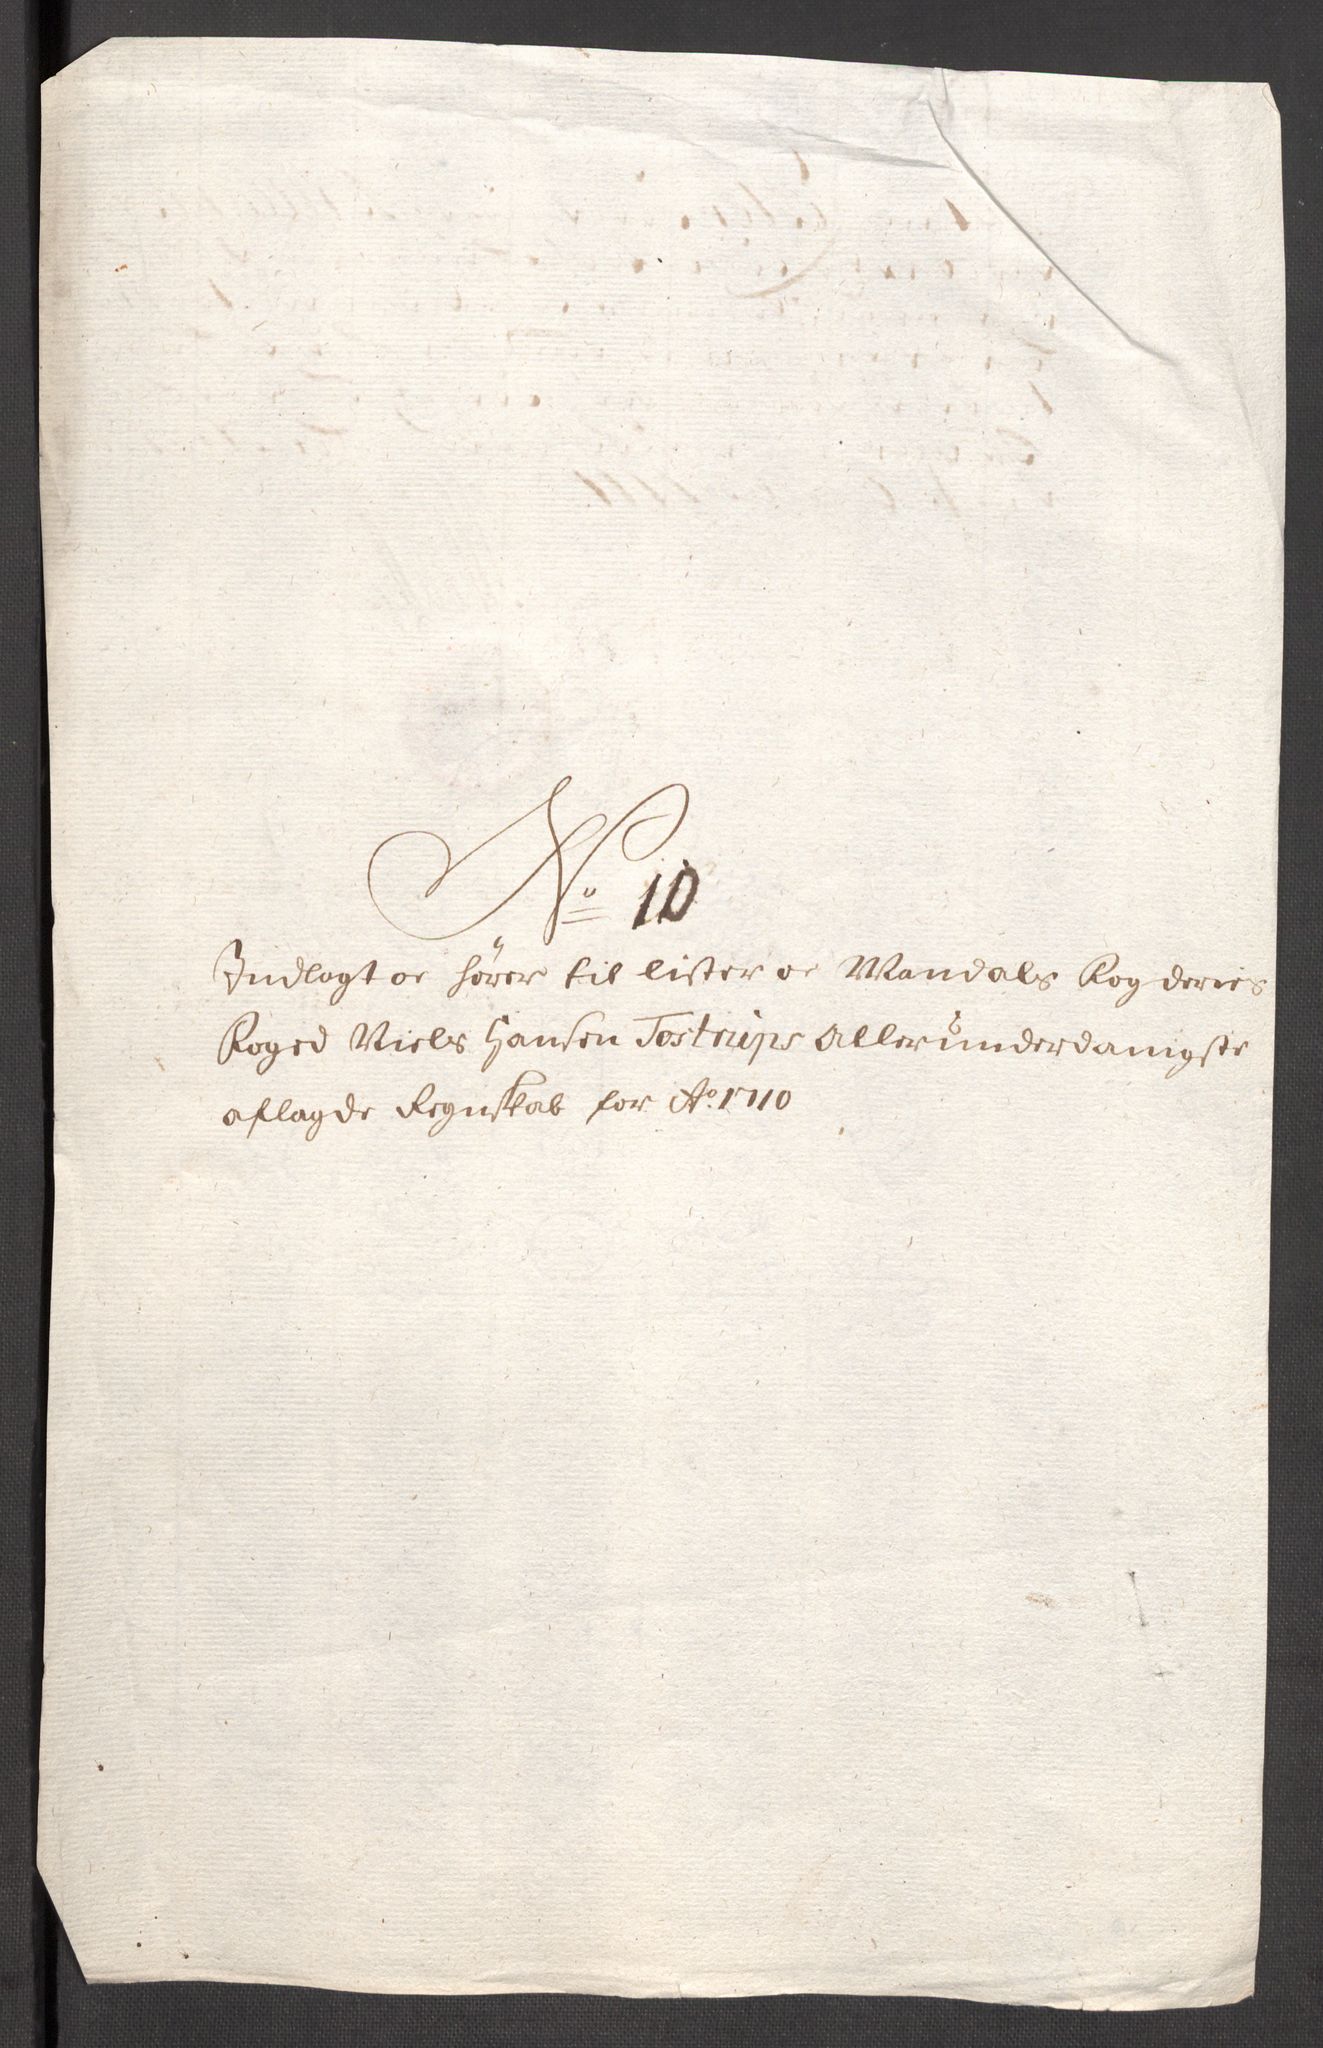 No 10
Indlagt oc hörer til lister oc Mandals fogderies
foged Niels Hansen Tostrups allerunderdanigste
aflagde Regnskab for Ao. 1710